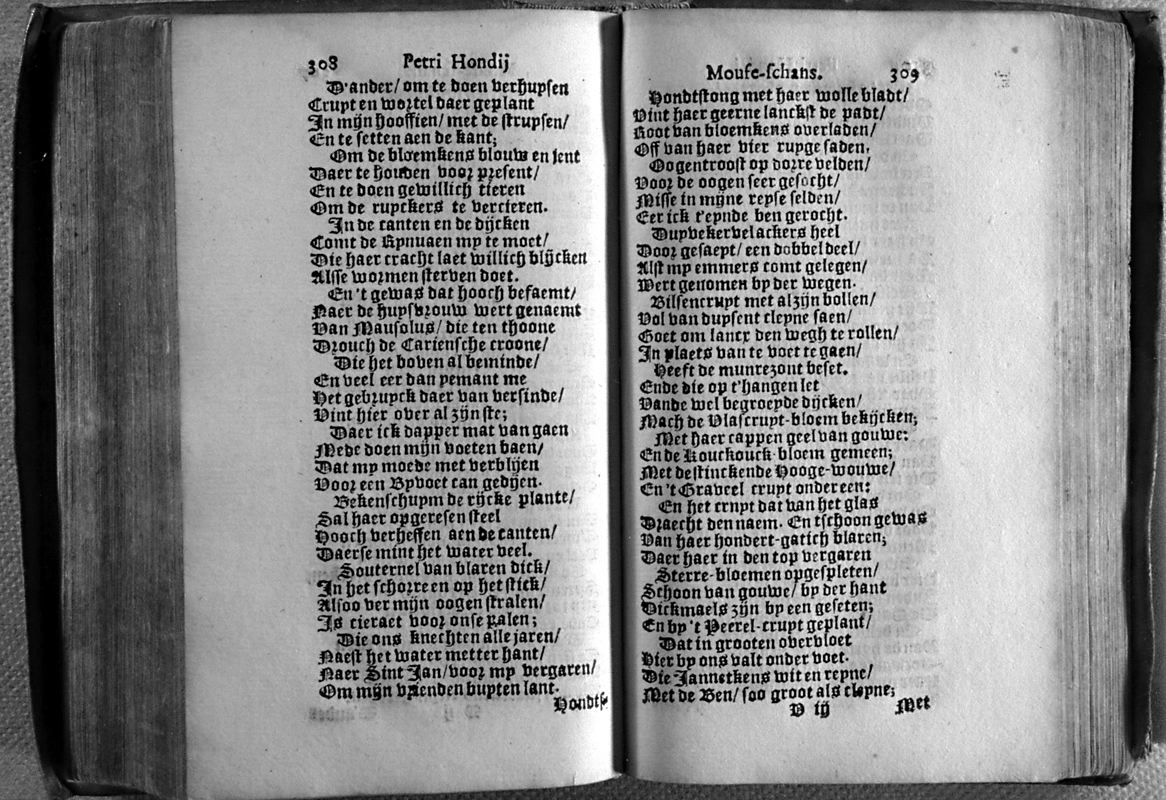 308 Petri Hondij
D'ander/ om te doen verhupsen
Crupt en wortel daer geplant
In mijn hooffien/ met de strupsen/
En te setten aen de kant;
Om de bloemkens blouw en jent
Daer te houden voor present/
En te doen gewillich tieren
Om de rupckers te vercieren.
In de canten en de dijcken
Comt de Rynvaen my te moet/
Die haer cracht laet willich blijcken
Alsse wormen sterven doet.
En 't gewas dat hooch befaemt/
Naer de huysvrouw wert genaemt
Van Mausolus/ die ten thoone
Drouch de Cariensche croone/
Die het boven al beminde/
En veel eer dan yemant me
Het gebruyck daer van versinde/
Vint hier over al zijn ste;
Daer ick dapper mat van gaen
Mede doen mijn voeten baen/
Dat my moede met verblijen
Voor een Byvoet can gedijen.
Bekenschuym de rijcke plante/
Sal haer opgeresen steel
Hooch verheffen aen de canten/
Daerse mint het water veel.
Souternel van blaren dick/
In het schorre en op het stick/
Alsoo ver mijn oogen stralen/
Is cieraet voor onse palen;
Die ons knechten alle jaren/
Naest het water metter hant/
Naer Sint Jan/ voor my vergaren/
Om mijn vrienden buyten lant.
Hondts-
Mouse-schans. 309
Hondtstong met haer wolle bladt/
Vint haer geerne lanckst de padt/
Root van bloemkens overladen/
Off van haer vier rupge saden.
Oogentroost op dorre velden/
Voor de oogen seer gesocht/
Misse in mijne reyse selden/
Eer ick t'eynde ben gerocht.
Duyvekervel ackers heel
Door gesaeyt/ een dobbel deel/
Alst my emmers comt gelegen/
Wert genomen by der wegen.
Bilsencruyt met al zijn bollen/
Vol van duysent cleyne saen/
Goet om lancx den wegh te rollen/
In plaets van te voet te gaen/
Heeft de munrezont beset.
Ende die op t'hangen let
Vande wel begroeyde dijcken/
Mach de Vlascruyt-bloem bekijcken;
Met haer cappen geel van gouwe:
En de Kouckouck-bloem gemeen;
Met de stinckende Hooge-wouwe/
En 't Graveel cruyt ondereen:
En het cruyt dat van het glas
Draecht den naem. En tschoon gewas
Van haer hondert-gatich blaren;
Daer haer in den top vergaren
Sterre-bloemen opgespleten/
Schoon van gouwe/ by der hant
Dickmaels zijn by een geseten;
En by 't Peerel-cruyt geplant/
Dat in grooten overvloet
Hier by ons valt onder voet.
Die Jannetkens wit en reyne/
Met de Ben/ soo groot als cleyne;
V ij Met